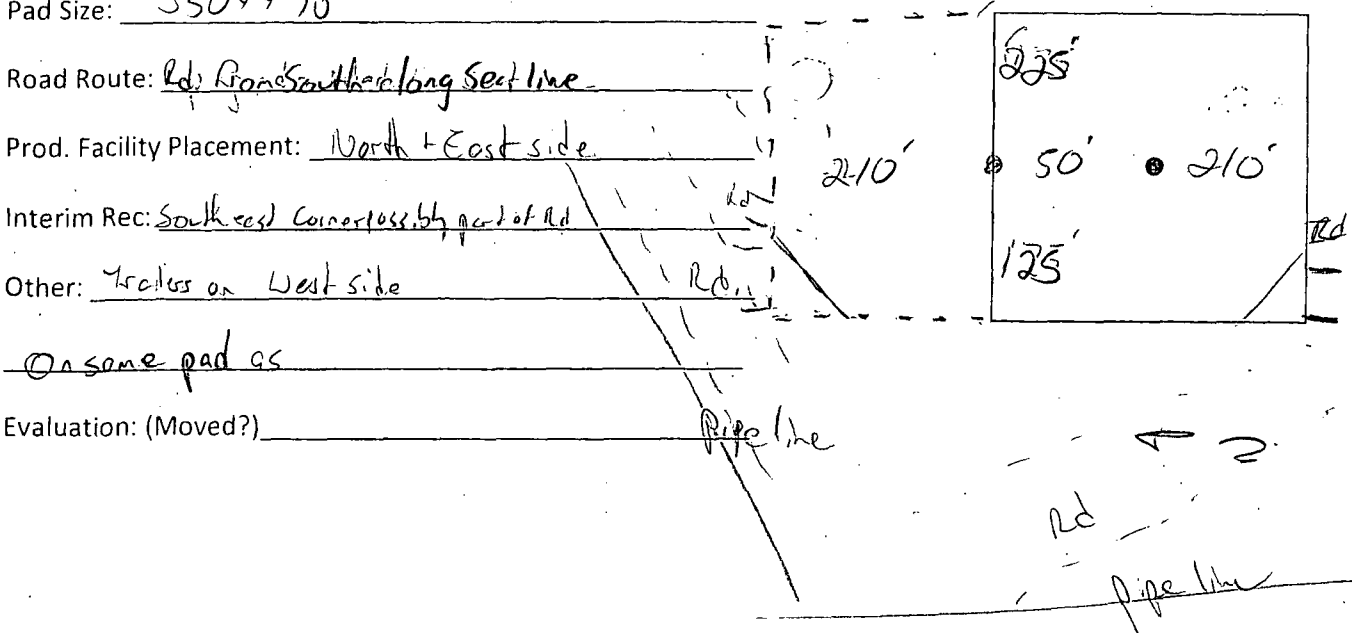 Pad Size: 350 x 470
Road Route: Rd. from South along Sect line
Prod. Facility Placement: North + East side.
Interim Rec: South east Corner possibly part of Rd
Other: Trailers on West side
On same pad as
Evaluation: (Moved?)
225'
210' 50' 210'
125'
Rd
Rd
Rd.
Pipeline
Rd
pipeline